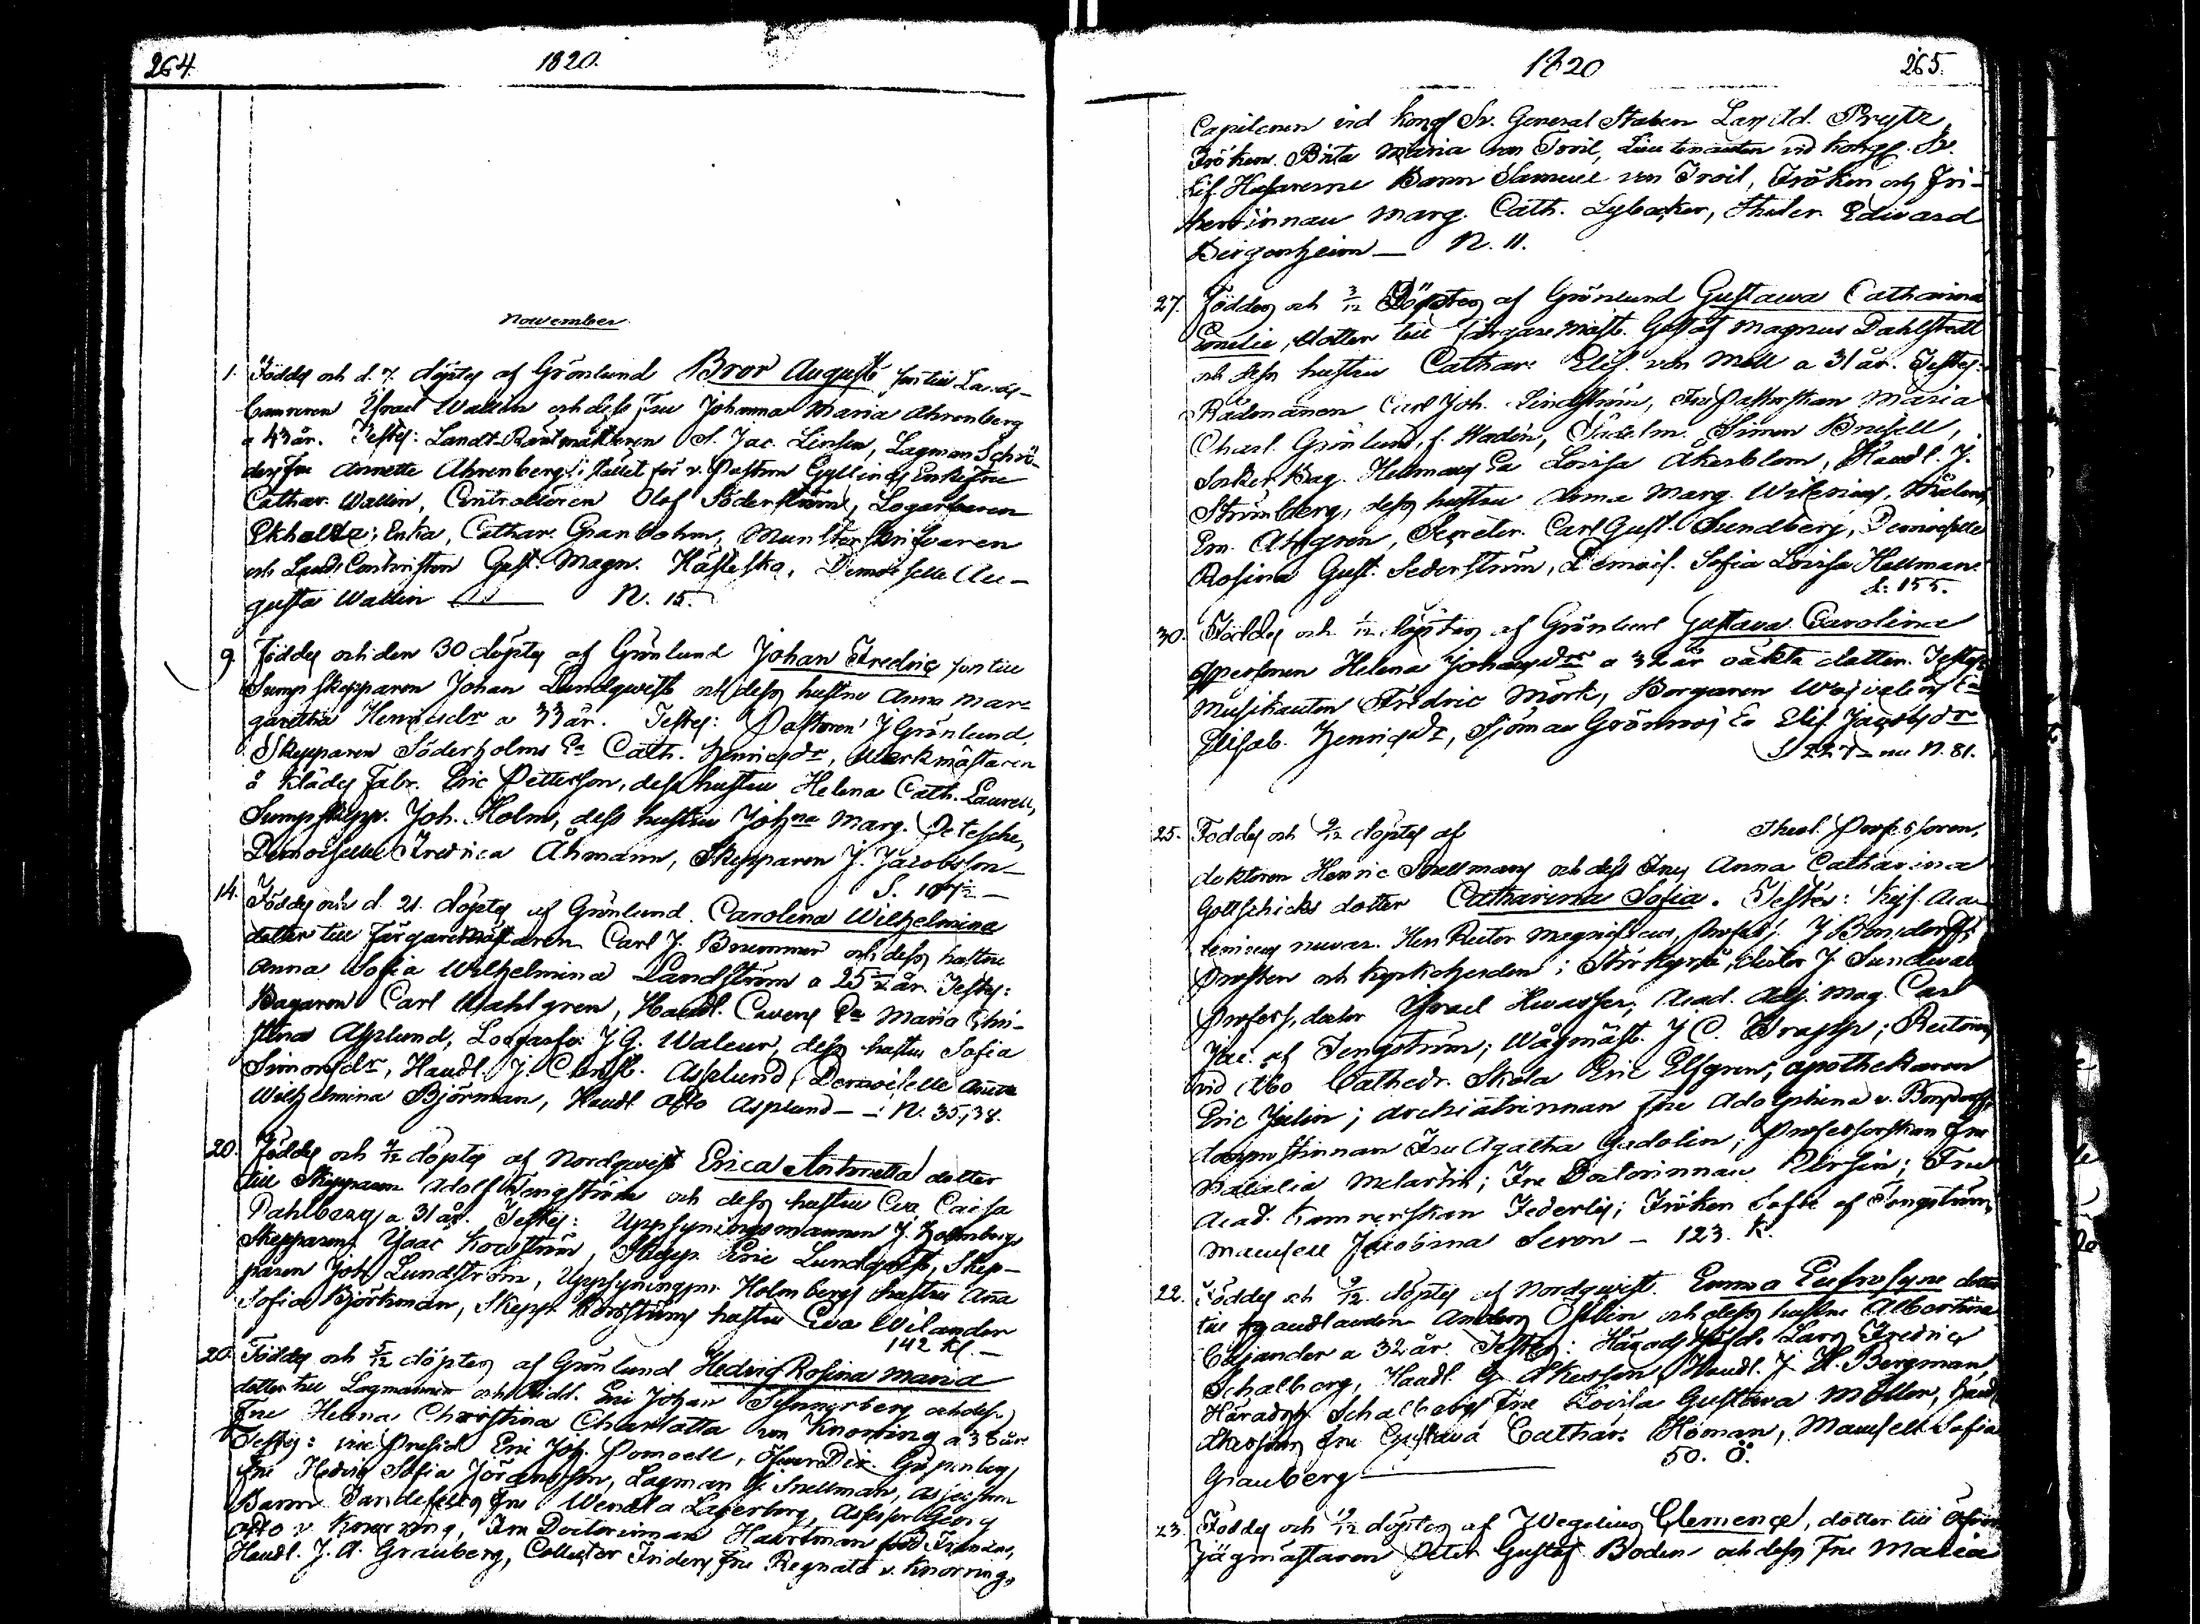 264.
1820.
November
1. Föddes och d. 7. döptes af Grönlund Bror August son till Lands-
Camreren Israel Wallin och dess Fru Johanna Maria Ahrenberg
a 43 år. Testes: Landt-Räntmästaren S. Jac. Linsén, Lagman Schrö-
ders Fru Annette Ahrenberg i stället för v. Pastorn Gyllings Enkefru
Cathar. Wallin, Controlleuren Olof Söderström, Logarfvaren
Ekholtz; Enka, Cathar. Granbohm, Munsterskrifvaren
och Lands Contoristen Gust. Magn. Hästesko, Demoiselle Au-
gusta Wallin — N. 15.
9. Föddes och den 30 döptes af Grönlund Johan Fredric son till
Sumpskepparen Johan Lundqwist och dess hustru Anna Mar-
garetha Henricsdr a 33 år. Testes: Pastoren J Grönlund,
Skepparen Söderholms Ea Cath. Henricsdr, Werkmästaren
å Klädes Fabr. Eric Petterson, dess hustru Helena Cath. Laurell,
Sumpskepp. Joh. Holm, dess hustru Johna Marg. Petesche,
Demoiselle Fredrica Åhmann, Skepparen J. Jacobsson —
S. 107½ —
14. Föddes och d. 21. döptes af Grönlund. Carolina Wilhelmina
dotter till Färgaremästaren Carl J. Brummer och dess hustru
Anna Sofia Wilhelmina Landström a 25½ år. Testes:
Bagaren Carl Wahlgren, Handl. Cavens Ea Maria Chri-
stina Asplund, J G. Waleur, dess hustru Sofia
Simonsdr, Handl. J. Christ. Asplund, Demoiselle Anna
Wilhelmina Björman, Handl. Otto Asplund — N. 35, 38.
20. Föddes och 4/12 döptes af Nordqwist Erica Antonetta dotter
till Skepparen Adolf Tengström och dess hustru Eva Caisa
Dahlberg a 31 år. Testes: Uppsyningsmannen J. Holmberg,
Skepparen Isaac Korsström, Skepp. Eric Lundqvist, Skep-
paren Joh Lundström, Uppsyningsm. Holmbergs hustru Aña
Sofia Björkman, Skepp. Korsströms hustru Eva Wilander
142 Kl. —
20. Föddes och 5/12 döptes af Grönlund Hedvig Rosina Maria
dotter till Lagmannen och Ridd. Eric Johan Synnerberg och dess
Fru Helena Christina Charlotta von Knorring a 38 år.
Testes: vice Presid. Eric Joh. Domoell, Öfver Dir. Gripenberg
Fru Hedvig Sofia Jörgensson, Lagman G. Snellman, Assessorn
Baron Fru Wendla Lagerborg, Assessor Georg
Otto v. Knorring, Fru Doctorinnan Haartman född Franzen,
Handl. J. A. Grauberg, Collector Friders Fru Regnata v. Knorring,
1820
265.
Capitenen vid Kongl Sv. General Staben Prytz,
Fröken Brita Maria von Troil, Lieutenanten vid Kongl. Sv.
Lif. Husarerne Baron Samuel von Troil, Fröken och Fri-
herrinnan Marg. Cath. Lybecker, Studer. Edward
Bergenheim — N. 11.
27. Föddes och 3/12 Döptes af Grönlund Gustava Catharina
Emelie, dotter till Färgaremäst. Gustaf Magnus Dahlstedt
och dess hustru Cathar. Elis. von Mell a 31 år. Testes:
Rådmannen Carl Joh. Lindström, Fru Pastorskan Maria
Charl. Grönlund, f. Hadén, Simon Brusell,
Socker Bag. Hellmans Ea Lovisa Åkerblom, Handl. J.
Strömberg, dess hustru Anna Marg. Wikenius, Målaren
Em. Ahlgren, Secreter. Carl Gust. Sundberg, Demoiselle
Rosina Gust. Sederström, Demois. Sofia Lovisa Hallman.
S: 155.
30. Föddes och 1/12 döptes af Grönlund Gustava Carolina
Qpersonen Helena Johansdr a 32 år oäkta dotter. Testes:
Musikanten Fredric Mörk, Borgaren Ea
Elisab. Henricsdr, Sjöman Grönroos Ea Elis. Jacobsdr
S 227 — nu N. 81.
25. Föddes och 9/12 döptes af Theol. Professoren,
doktoren Henric Snellmans och dess Fru Anna Catharina
Gottschicks dotter Catharina Sofia. Testes: Kejs. Aca-
demiens nuvar. Herr Rector Magnificus, Profess. J Bonsdorff;
Prosten och kyrkoherden i Storkyrö, Doctor J Sundwall
Profess. doctor Israel Hwasser; Acad. Adj. Mag. Carl
Jac. af Tengström; Wågmäst. J C. Trapp; Rectorn
vid Åbo Cathedr. Skola Eric Elfgren; apothekaren
Eric Julin; Archiatrinnan Fru Adolphina v. Bonsdorff;
domprostinnan Fru Agatha Gadolin; Professorskan Fru
Natalia Melartin; Fru Doctorinnan Florin; Fru
Acad. Kamrerskan Federley; Fröken Sofie af Tengström,
Mamsell Jacobina Seron — 123. K.
22. Föddes och 9/12. döptes af Nordqwist. Emma Eufrosyne dotter
till Handlanden Anders Östlin och dess hustru Albertina
Ciljander a 32 år. Testes: Häradshöfd. Lars Fredric
Schalberg, Handl. G. Åkesson, Handl. J. H. Bergman,
Häradsh. Schalbergs Fru Lovisa Gustava Möller, Handl.
Åkessons Fru Gustava Cathar. Höman, Mamsell Sofia
Grauberg — 50. Ö.
23. Föddes och 9/12 döptes af J Wegelius Clemence, dotter till Öfver
Jägmästaren Peter Gustaf Boden och dess Fru Maria